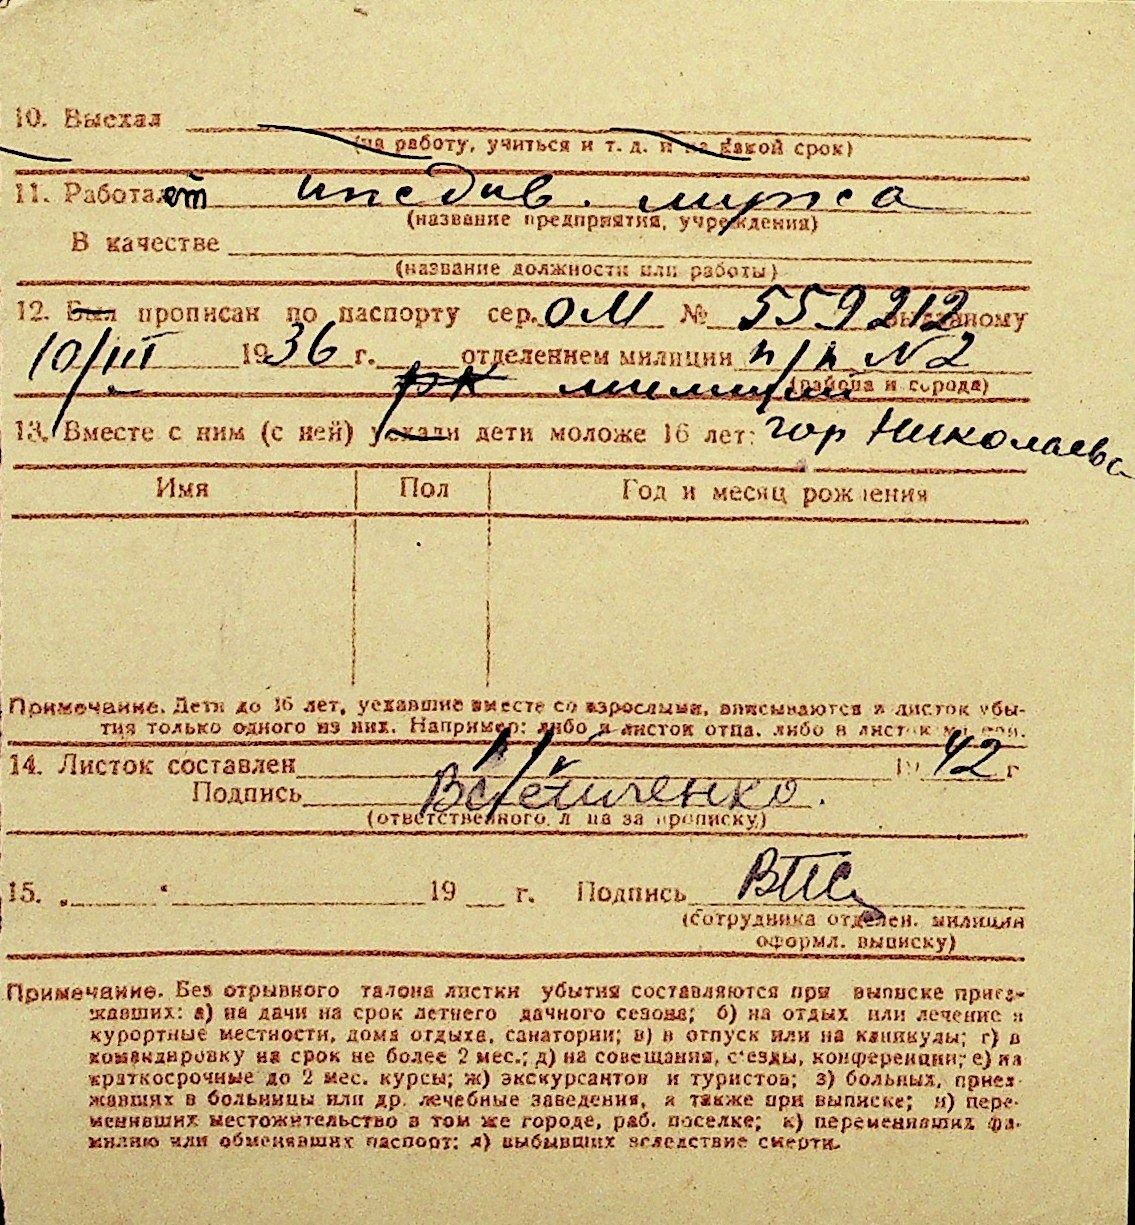 10. Выехал
(на работу, учиться и т. д. и на какой срок)
11. Работает иждив. мужа
(название предприятия, учреждения)
В качестве
(название должности или работы)
12. Был прописан по паспорту сер. ОМ № 559212 выданному
10/III 1936 г. отделением милиции п/п № 2
РК милиции (района и города)
13. Вместе с ним (с ней) уехали дети моложе 16 лет: гор Николаева
Имя Пол Год и месяц рождения
Примечание. Дети до 16 лет, уехавшие вместе со взрослыми, вписываются в листок убы-
тия только одного из них. Например: либо в листок отца, либо в листок матери.
14. Листок составлен 1942 г
Подпись
(ответственного лица за прописку)
15. 19 г. Подпись
(сотрудника отделен. милиции
оформл. выписку)
Примечание. Без отрывного талона листки убытия составляются при выписке приез-
жавших: а) на дачи на срок летнего дачного сезона; б) на отдых или лечение в
курортные местности, дома отдыха, санатории; в) в отпуск или на каникулы; г) в
командировку на срок не более 2 мес.; д) на совещания, съезды, конференции; е) на
краткосрочные до 2 мес. курсы; ж) экскурсантов и туристов; з) больных, приез-
жавших в больницы или др. лечебные заведения, а также при выписке; и) пере-
менивших местожительство в том же городе, раб. поселке; к) переменивших фа-
милию или обменявших паспорт; л) выбывших вследствие смерти.